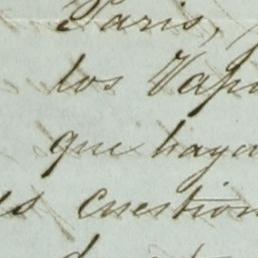 Paris,
los Vapo
que haya
s cuestion